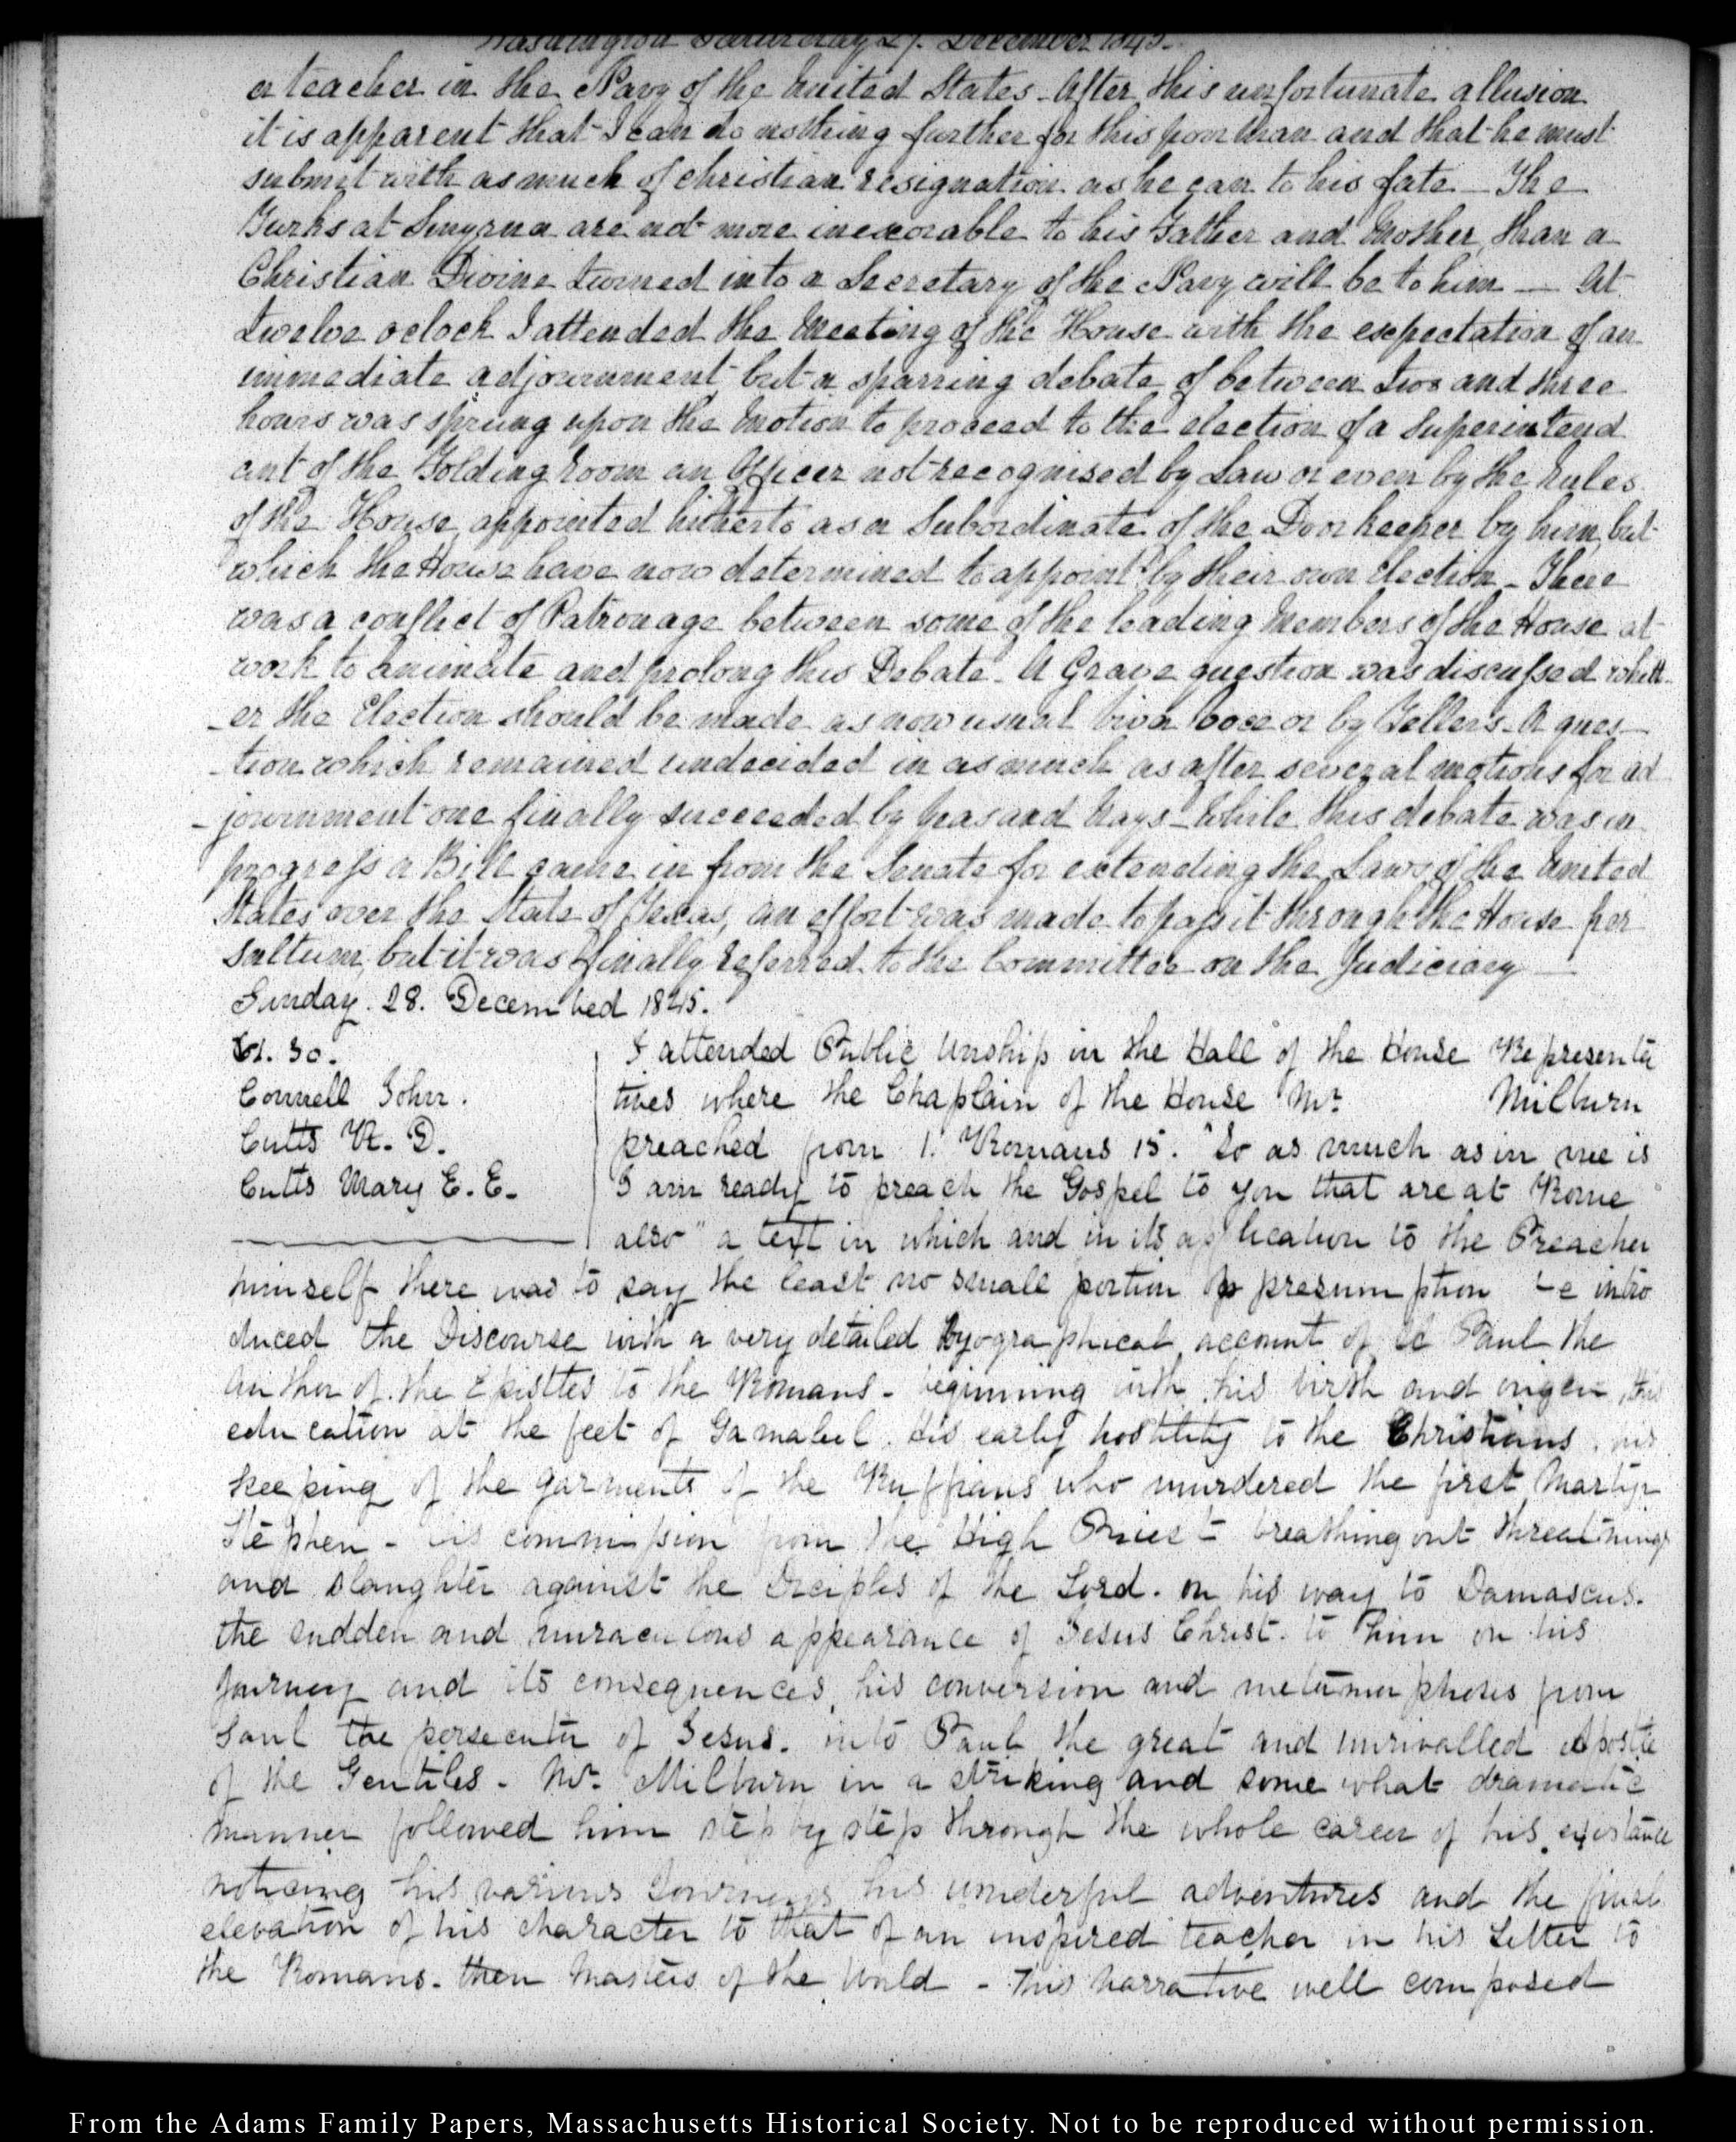 Washington Saturday 27. December 1845.
a teacher in the Navy of the United States. After this unfortunate allusion
it is apparent that I can do nothing further for this poor man and that he must
submit with as much of christian resignation as he can to his fate — The
Turks at Smyrna are not more inexorable to his Father and Mother, than a
Christian Divine turned into a Secretary of the Navy will be to him — At
twelve oclock I attended the Meeting of the House with the expectation of an
immediate adjournment but a sparring debate of between two and three
hours was sprung upon the Motion to proceed to the election of a Superintend
ant of the Folding room an Officer not recognised by Law or even by the Rules
of the House, appointed hitherto as a Subordinate of the Door keeper by him, but
which the House have now determined to appoint by their own Election – There
was a conflict of Patronage between some of the leading Members of the House at
work to animate and prolong this Debate. A Grave question was discussed wheth-
-er the Election should be made as now usual viva voce or by Tellers. A ques-
-tion which remained undecided in as much as after several motions for ad
-journment one finally succeeded by Yeas and Nays – While this debate was in
progress a Bill came in from the Senate for extending the Laws of the United
States over the State of Texas, an effort was made to pass it through the House per
saltum, but it was finally referred to the Committee on the Judiciary —
Sunday. 28. December 1845.
30.
Connell John.
Cutts R. D.
Cutts Mary E. E.
I attended Public Worship in the Hall of the House Representa
tives where the Chaplain of the House Mr. Milburn
preached from 1. Romans 15. "So as much as in me is
I am ready to preach the Gospel to you that are at Rome
also" a text in which and in its application to the Preacher
himself there was to say the least no small portion of presumption He intro
duced the Discourse with a very detailed byographical account of St Paul the
Author of the Epistles to the Romans – beginning with his birth and origen, his
education at the feet of Gamaliel. His early hostility to the Christians, his
keeping of the garments of the Ruffians who murdered the first Martyr
Stephen – his commission from the High Priest – breathing out threatnings
and slaughter against the Disciples of the Lord. on his way to Damascus.
the sudden and miraculous appearance of Jesus Christ. to him on his
Journey and its consequences, his conversion and metamorphosis from
Saul the persecutor of Jesus. into Paul the great and unrivalled Apostle
of the Gentiles – Mr. Milburn in a striking and some what dramatic
manner followed him step by step through the whole career of his existance
noticing his various Journeys his wonderful adventures and the final
elevation of his character to that of an inspired teacher in his Letter to
the Romans. then Masters of the World – This Narrative well composed
From the Adams Family Papers, Massachusetts Historical Society. Not to be reproduced without permission.